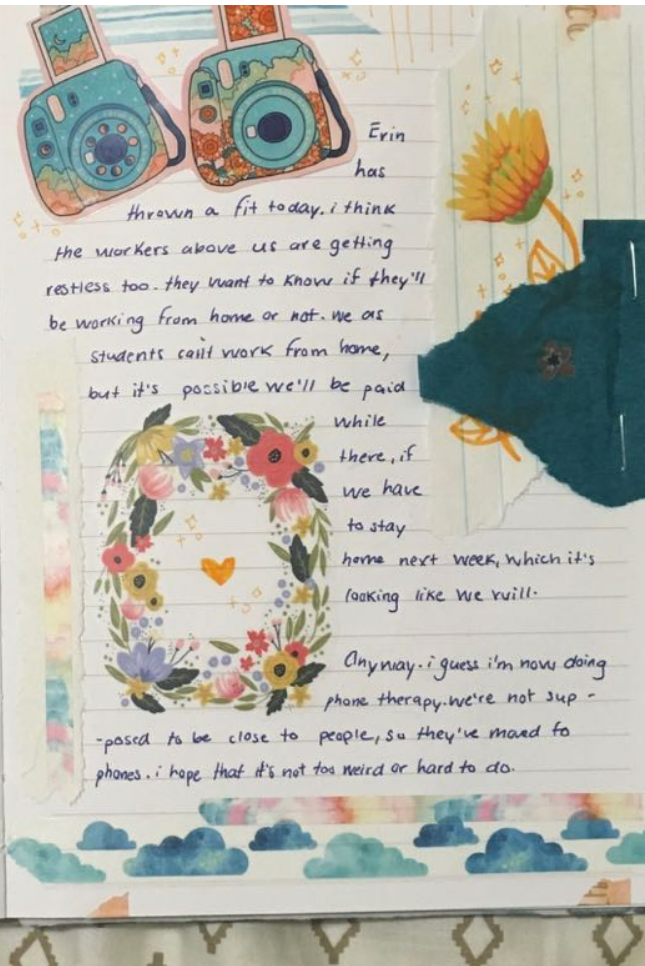 Erin
has
thrown a fit today. i think
the workers above us are getting
restless too. they want to know if they'll
be working from home or not. we as
students can't work from home,
but it's possible we'll be paid
while
there, if
we have
to stay
home next week, which it's
looking like we will.
Anyway. i guess i'm now doing
phone therapy. we're not sup-
-posed to be close to people, so they've moved to
phones. i hope that it's not too weird or hard to do.